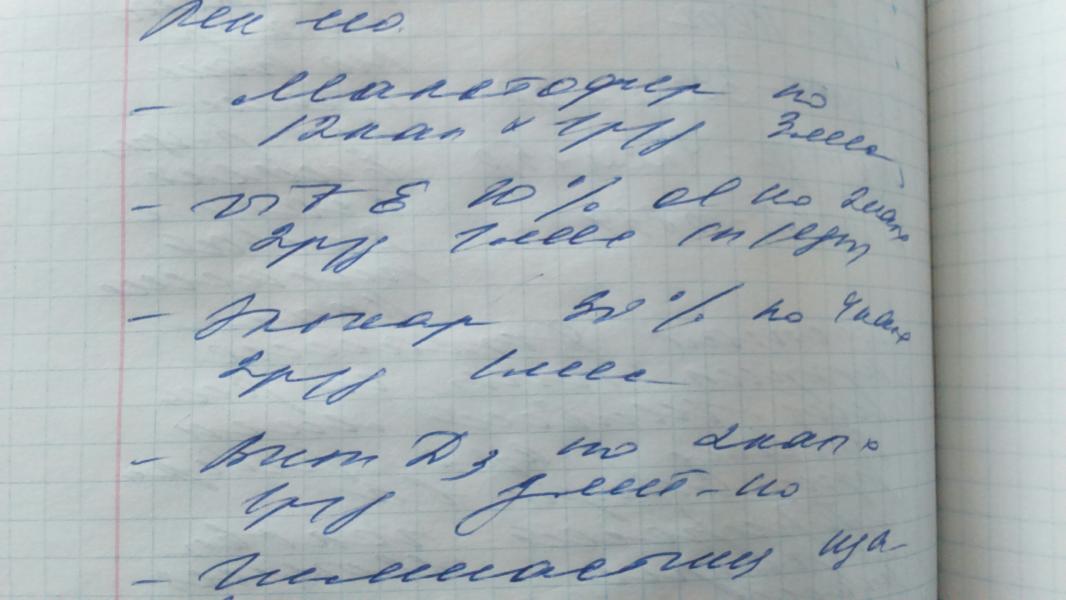 Рек-но.
- Малтофер по
12 кап x 1р/д 3 мес
- Вит Е 10% по 2 кап x
2р/д 1 мес
- Элькар 30% по 4 кап x
2р/д 1 мес
- Вит Д3 по 2 кап x
1р/д длит-но
- Гимнастик ща-